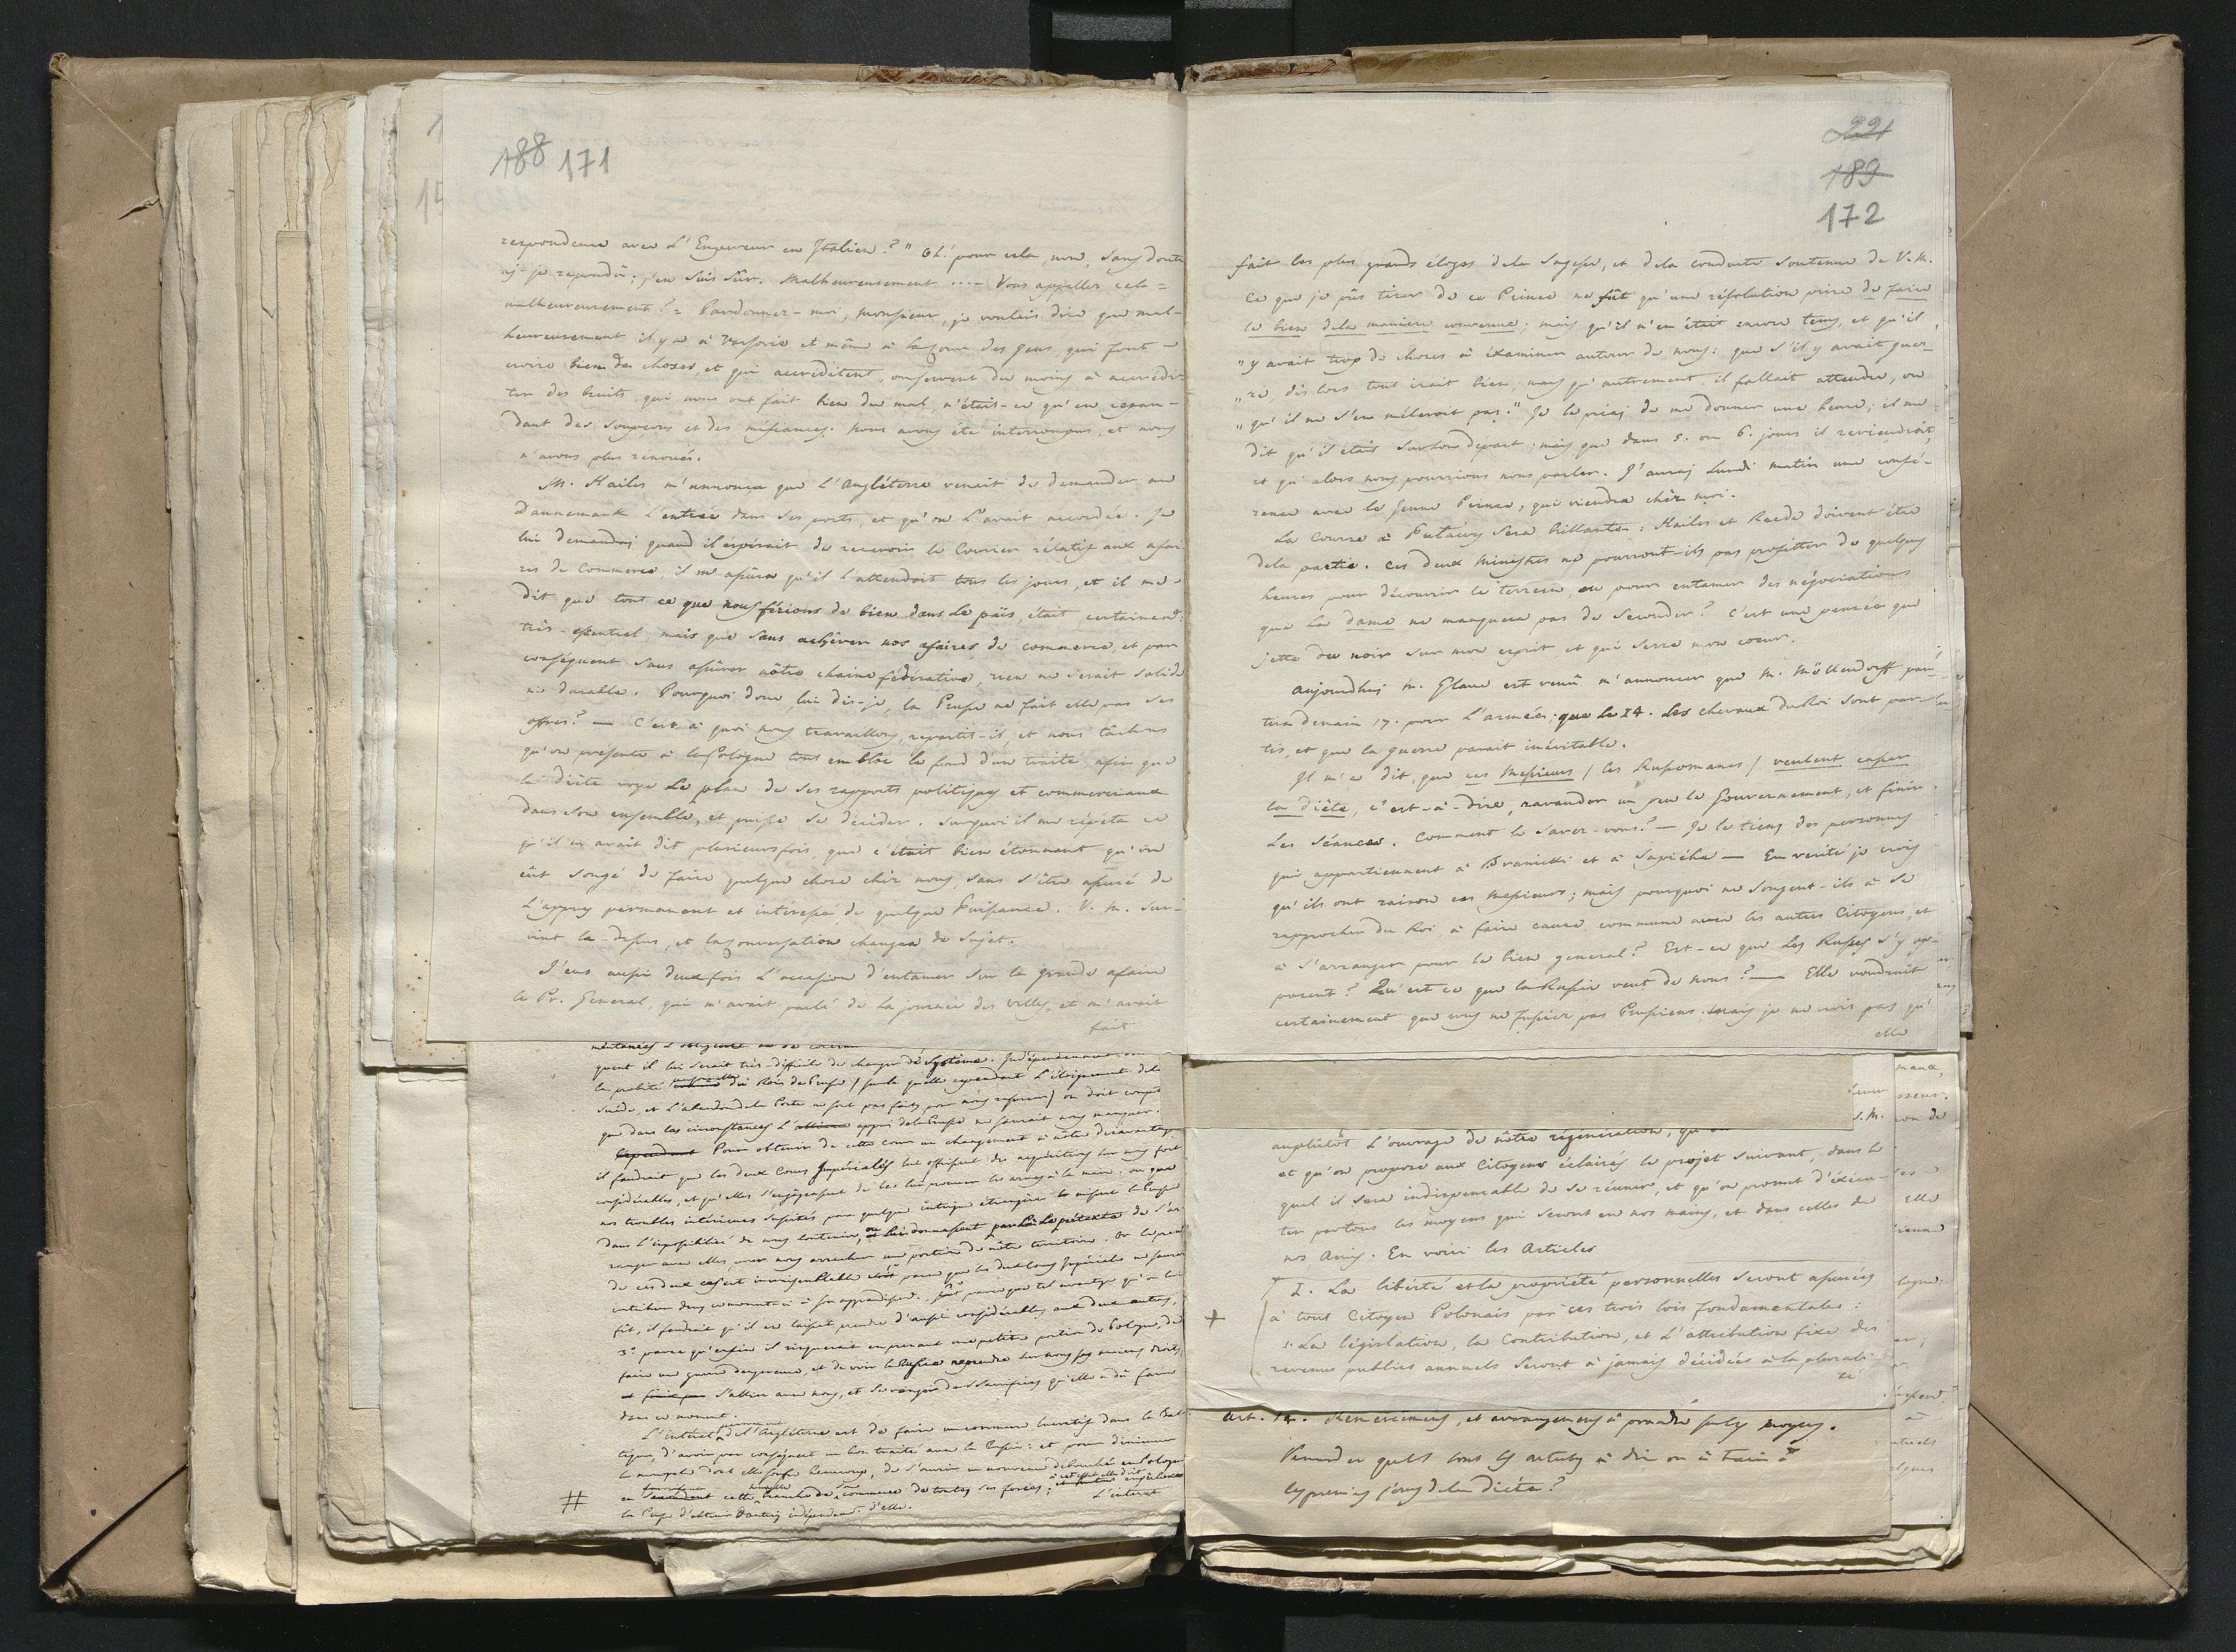 188 171
respondence avec L'Empereur en Italien?" Oh! pour cela non, sans doute
aj-je repondû; j'en suis sûr. Malheureusement ...- Vous appellez cela=
malheureusement?= Pardonnez-moi, Monsieur, je voulais dire que mal-
heureusement il y a à Varsovie et même à la Cour des gens, qui font
croire bien des choses, et qui accréditent, ou servent du moins à accrédi-
ter des bruits qui nous ont fait bien du mal, n'était-ce qu'en repan-
dant des soupçons et des méfiances. Nous avons été interrompus, et nous
n'avons plus renoués.
M. Hailes m'annonça que L'Angléterre venait de demander au
Dannemark L'entrée dans ses ports, et qu'on L'avait accordée. Je
lui demandaj quand il éspérait de recevoir le Courier rélatif aux afai
res de Commerce, il m'assura qu'il L'attendoit tous les jours, et il me
dit que tout ce que nous férions de bien dans Le païs, était certainemt
très-essentiel, mais que sans achêver nos afaires de commerce, et par
conséquent sans assûrer nôtre chaine fédérative, rien ne serait solide
ni durable. Pourquoi donc, lui dis-je, la Prusse ne fait elle pas ses
offres? — C'est à quoi nous travaillons, repartit-il et nous tâchons
qu'on présente à la Pologne tout en bloc le fond d'un traité, afin que
la diète voye Le plan de ses rapports politiques et commerciaux
dans son ensemble, et puisse se décider. Surquoi il me répéta ce
qu'il m'avait dit plusieurs fois, que c'était bien étonnant qu'on
eût songé de faire quelque chose chèz nous, sans s'être assuré de
L'appuy permanent et intéressé de quelque Puissance. V. M. sur-
vint la-dessus, et la conversation changea de sujet.
J'eus aussi deux fois L'occasion d'entamer sur la grande afaire
le Pr. General, qui m'avait parlé de La journée des villes, et m'avait
fait
quent il lui serait très-difficile de changer de systême.
la probité du Roi de Prusse / sur la quelle cependant L'éloignement de la
Suède, et L'abandon de la Porte ne sont pas faits pour nous rassurer) on doit compt
que dans les circonstances L'alliance appui de la Prusse ne saurait nous manquer.
Cependant Pour obtenir de cette cour un changement à nôtre désavantage
il faudrait que les deux Cours Impériales lui offrissent des acquisitions sur nous fort
considérables, et qu'elles s'engageassent de les lui procurer les armes à la main: ou que
nos troubles intérieurs suscités par quelque intrigue étrangère missent la Prusse
dans L'impossibilité de nous soutenir, ou lui donnassent par Là Le prétexte de s'ar
ranger avec elles, pour nous arracher une portion de nôtre territoire. Or le premr
de ces deux cas est invraisemblable parce que les deux Cours Impériales ne sauraient
fût, il faudrait qu'il en laissat prendre d'aussi considérables aux deux autres,
3° parce qu'enfin il risquerait en prenant une petite portion de Pologne, de
faire une guerre dangereuse, et de voir la Russie reprendre sur nous ses anciens droits,
et finir par s'allier avec nous, et se vanger des sacrifices qu'elle a dû faire
dans ce moment.
L'intérêt permanent de L'Angléterre est de faire un commerce lucratif dans la Bal-
tique, d'avoir par conséquent un bon traité avec la Russie: et pour diminuer
le monopole dont elle souffre beaucoup, de s'ouvrir un nouveau débouché en Pologne
cette branche de commerce de toutes ses forces;
L'interet
#
221
189
172
fait les plus grands éloges de la sagesse, et de la conduite soutenue de V. M.
Ce que je pûs tirer de ce Prince ne fût qu'une résolution prise de faire
le bien de la maniere convenue; mais qu'il n'en était encore tems, et qu'il
"y avait trop de choses à éxaminer autour de nous: que s'il y avait guer-
"re, dès lors tout irait bien; mais qu'autrement il fallait attendre, ou
"qu'il ne s'en mèleroit pas." Je le priaj de me donner une heure; il me
dit qu'il était sur son départ; mais que dans 5. ou 6. jours il reviendroit,
et qu'alors nous pourrions nous parler. J'auraj Lundi matin une confé-
rence avec le jeune Prince, qui viendra chèz moi.
La Course à Pulawy sera brillante: Hailes et Reede doivent être
de la partie. Ces deux Ministres ne pourront-ils pas profitter de quelques
heures pour découvrir le terrein, ou pour entamer des négociations
que La dame ne manquera pas de seconder? C'est une pensée que
jette du noir sur mon esprit et qui serre mon coeur.
Aujourdhuj M. Glave est venû m'annoncer que M. Möllendorff par-
tira demain 17. pour L'armée; que le 14. Les chevaux du Roi sont par-
tis, et que la guerre parait inévitable.
Il m'a dit, que ces Messieurs / les Russomanes / veulent casser
la diète, c'est-à-dire, ravauder un peu le Gouvernement, et finir
Les séances. Comment le savez-vous? — Je le tiens des personnes
qui appartiennent à Branicki et à Sapiéha — En verité je crois
qu'ils ont raison ces Messieurs; mais pourquoi ne songent-ils à se
rapprocher du Roi à faire cause commune avec les autres Citoyens, et
à s'arranger pour le bien general? Est-ce que Les Russes s'y op-
posent? Qu'est ce que la Russie veut de nous? — Elle voudrait
certainement que nous ne fussiez pas Prussiens. Mais je ne crois pas qu'
elle
S. M.
amplûtôt L'ouvrage de nôtre régénération,
et qu'on propose aux Citoyens éclairés le projet suivant, dans le
quel il sera indispensable de se réunir, et qu'on promet d'éxécu-
ter par tous les moyens qui seront en nos mains, et dans celles de
nos Amis. En voici les Articles
I. La liberté et la proprieté personnelles seront assurées
à tout Citoyen Polonais par ces trois lois fondamentales:
1° La législation, la Contribution, et L'attribution fixe des
revenus publics annuels seront à jamais décidées à la plurali-
té
+
Art. 12. Remerciemens, et arrangemens à prendre sur les moyens.
les premiers jours de la diète?